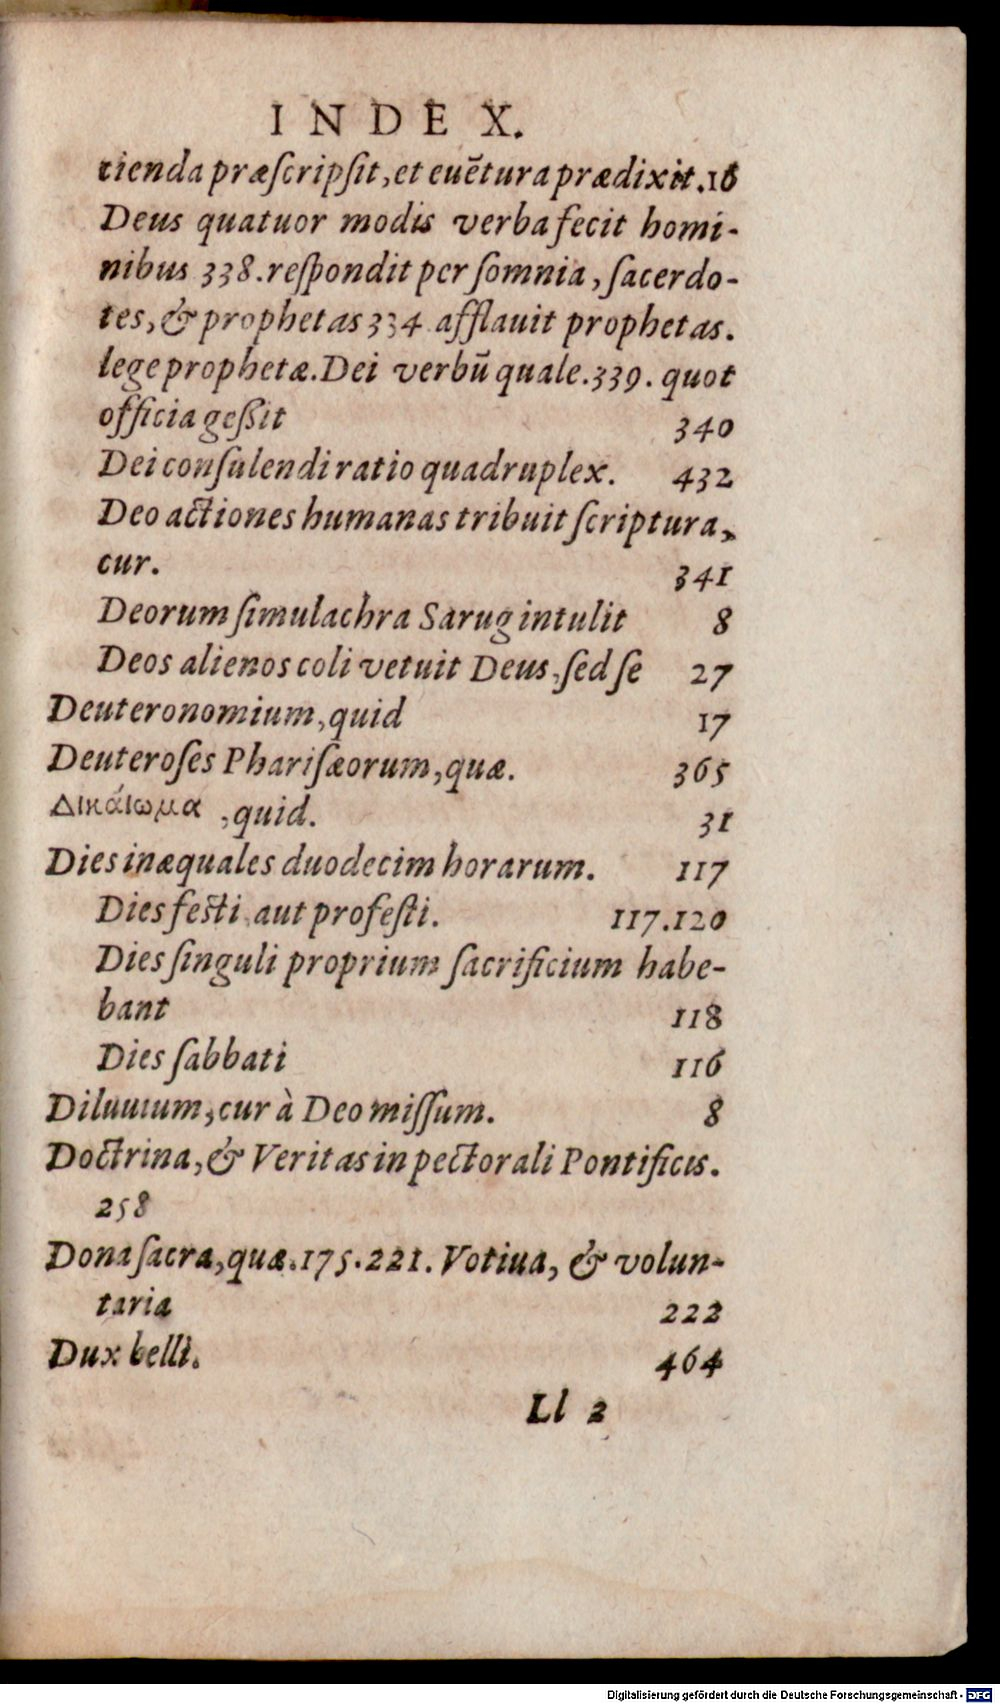 INDEX.
tienda præſcripſit, et euētura prædixit. 16
Deus quatuor modis verba fecit homi-
nibus 338. reſpondit per ſomnia, ſacerdo-
tes, & prophetas 334 afflauit prophetas.
lege prophetæ. Dei verbū quale. 339. quot
officia geßit 340
Dei conſulendi ratio quadruplex. 432
Deo actiones humanas tribuit ſcriptura,
cur. 341
Deorum ſimulachra Sarug intulit 8
Deos alienos coli vetuit Deus, ſed ſe 27
Deuteronomium, quid 17
Deuteroſes Phariſæorum, quæ. 365
Δικάιωμα, quid. 31
Dies inæquales duodecim horarum. 117
Dies feſti aut profeſti. 117. 120
Dies ſinguli proprium ſacrificium habe-
bant 118
Dies ſabbati 116
Diluuium, cur à Deo miſſum. 8
Doctrina, & Veritas in pectorali Pontificis.
258
Dona ſacra, quæ. 175. 221. Votiua, & volun-
taria 222
Dux belli. 464
Ll 2
Digitalisierung gefördert durch die Deutsche Forschungsgemeinschaft - DFG